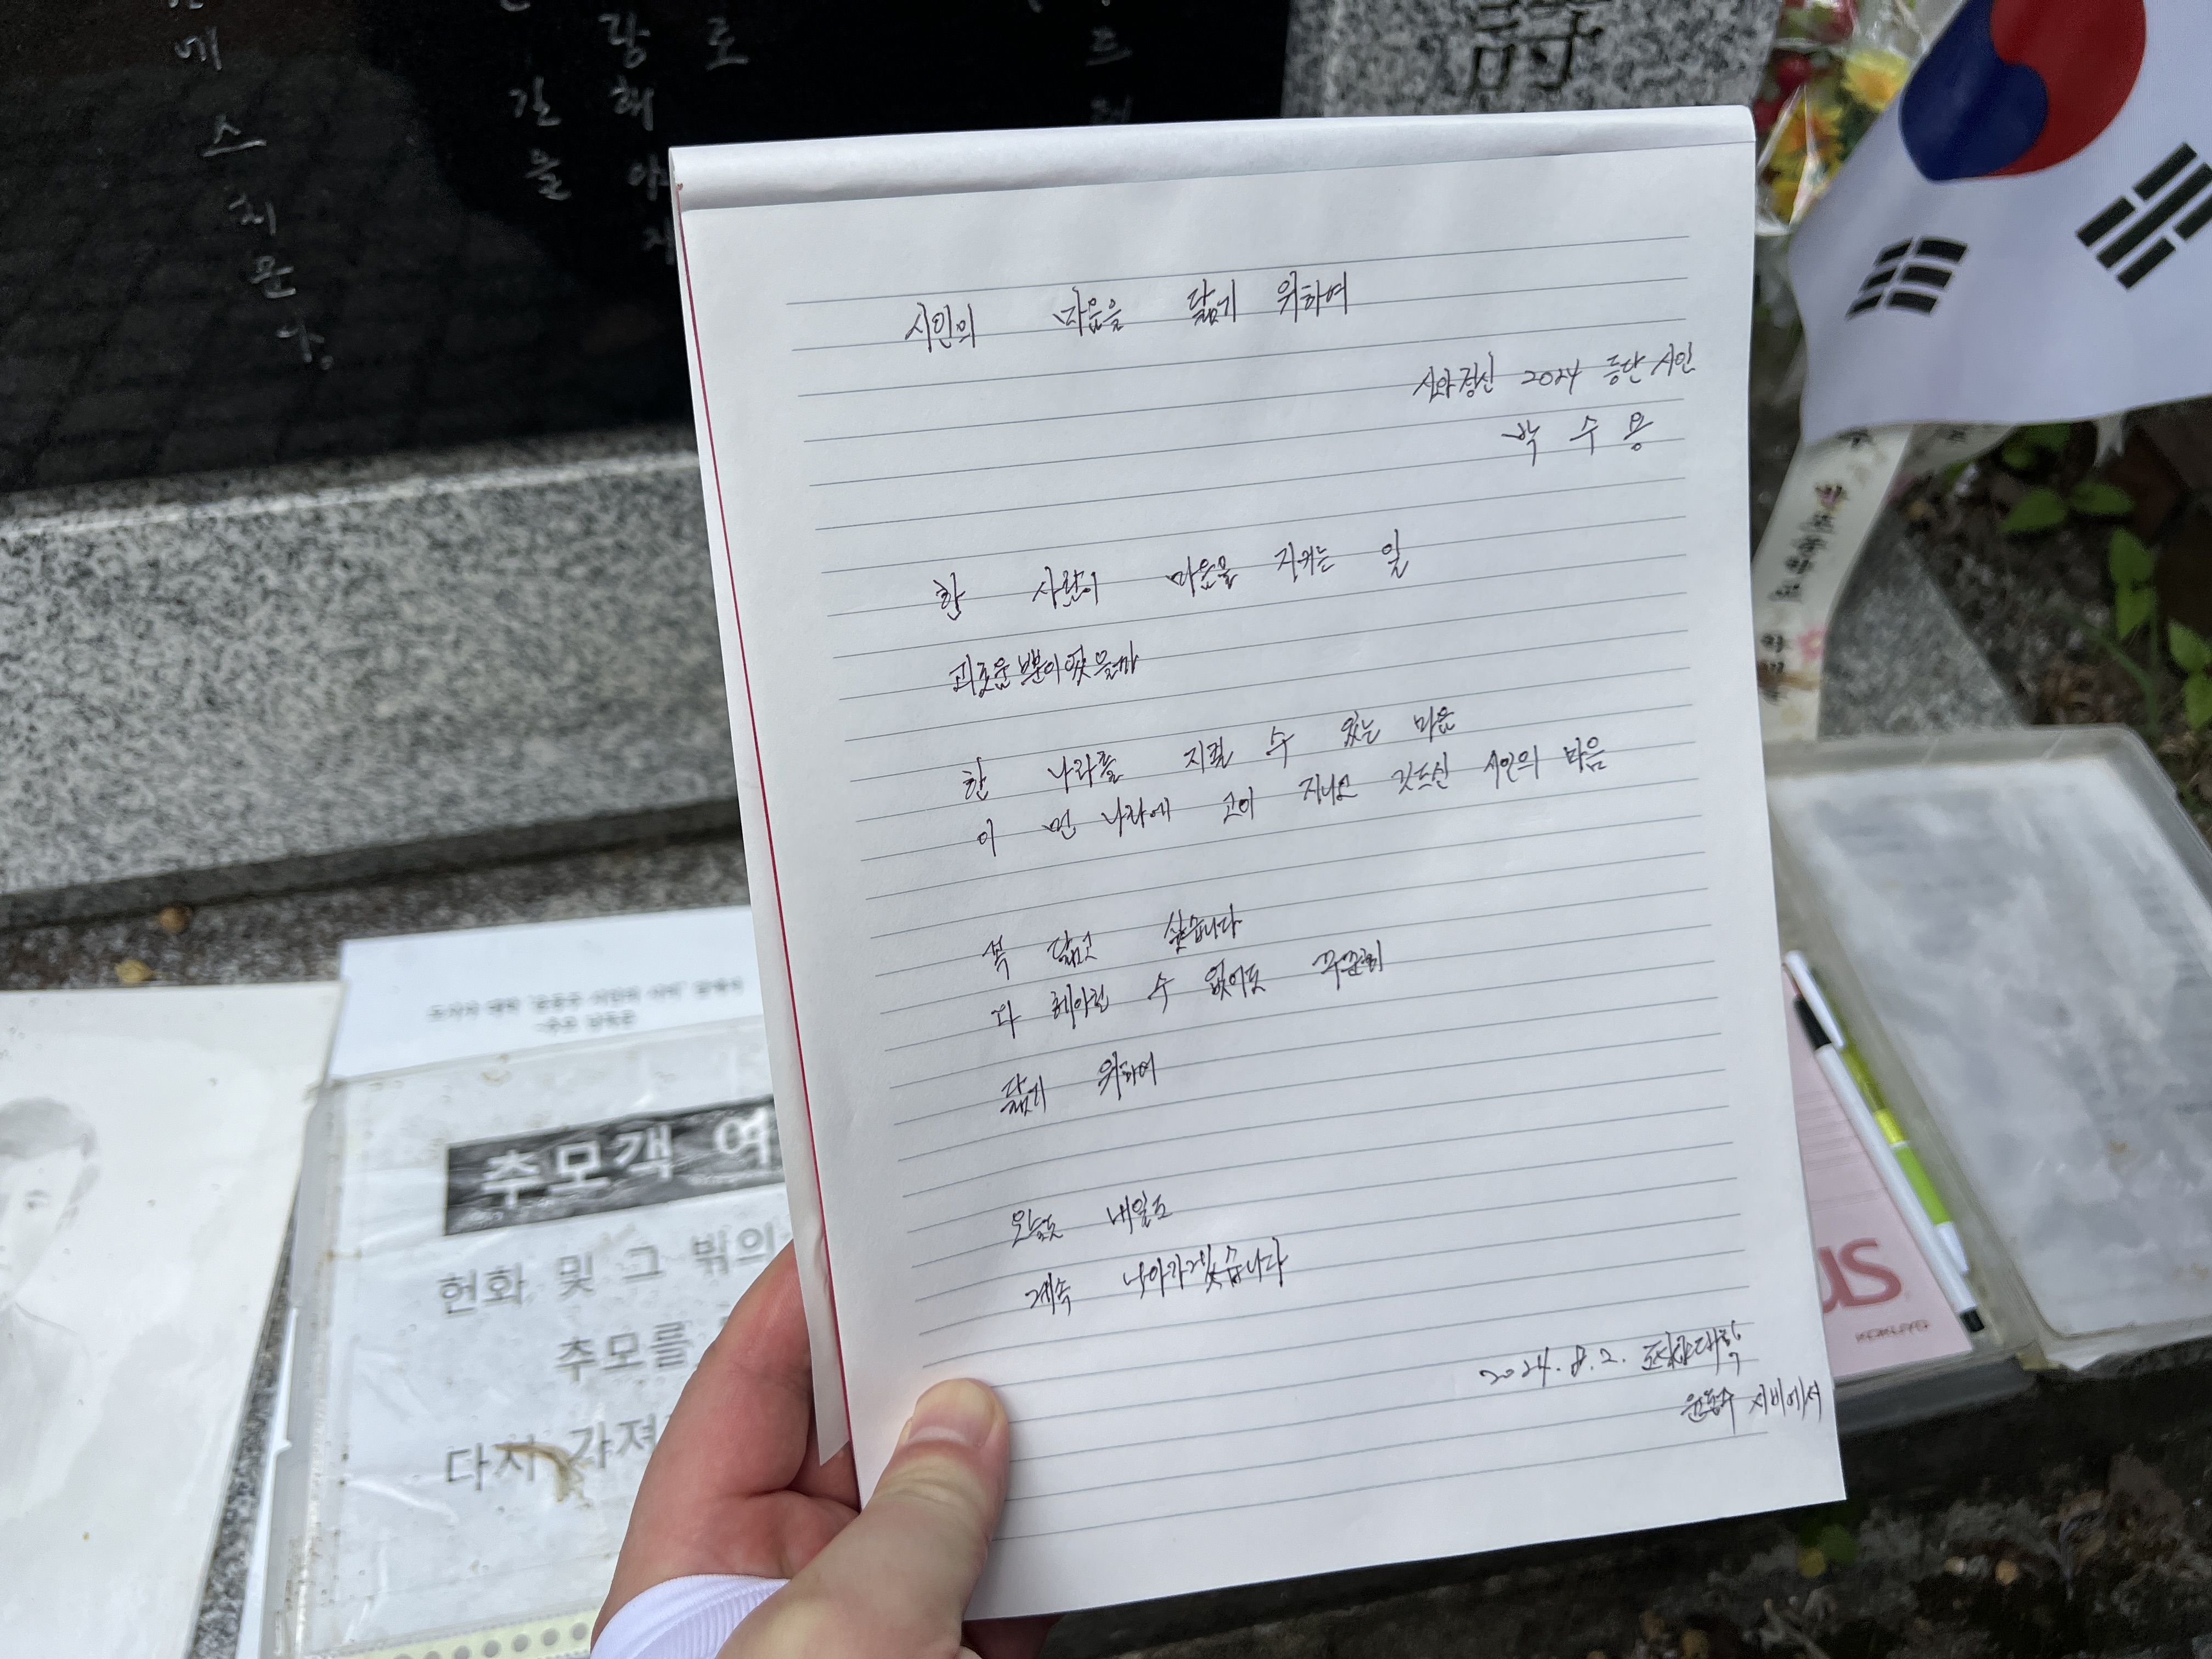 메
스
치
운
다.
길
을
랑
해
야
지
로
詩
시인의 마음을 닮기 위하여
시와정신 2024 등단 시인
박 수 용
한 사람이 마음을 지키는 일
괴로운 뿐이었을까
한 나라를 지킬 수 있는 마음
이 먼 나라에 고이 지니고 깃드신 시인의 마음
꼭 닮고 싶습니다
다 헤아릴 수 없어도 꾸준히
닮기 위하여
오늘도 내일도
계속 나아가겠습니다
2024. 8. 2. 도시샤대학
윤동주 시비에서
추모객 여
헌화 및 그 밖의
추모를
다시 가져
us
KOKUYO